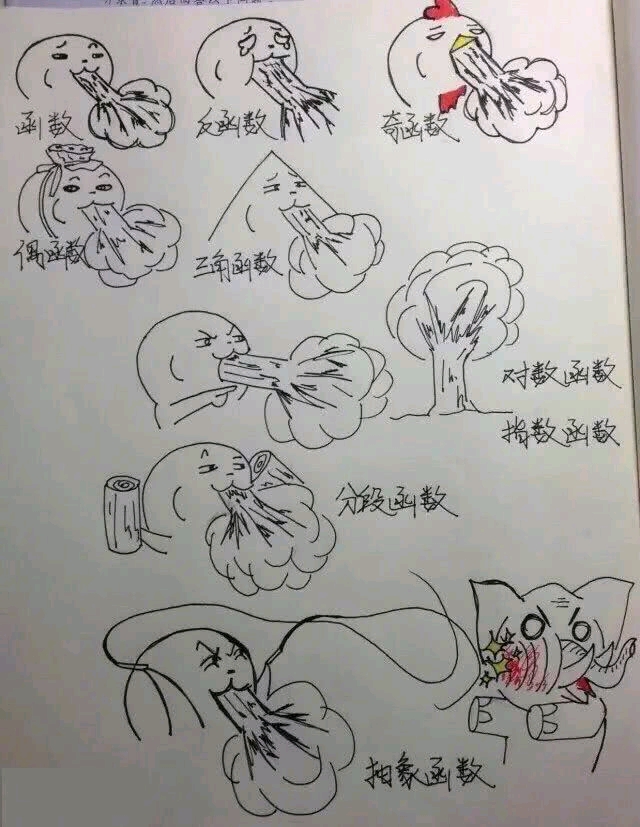 函数
反函数
奇函数
偶函数
三角函数
对数函数
指数函数
分段函数
抽象函数